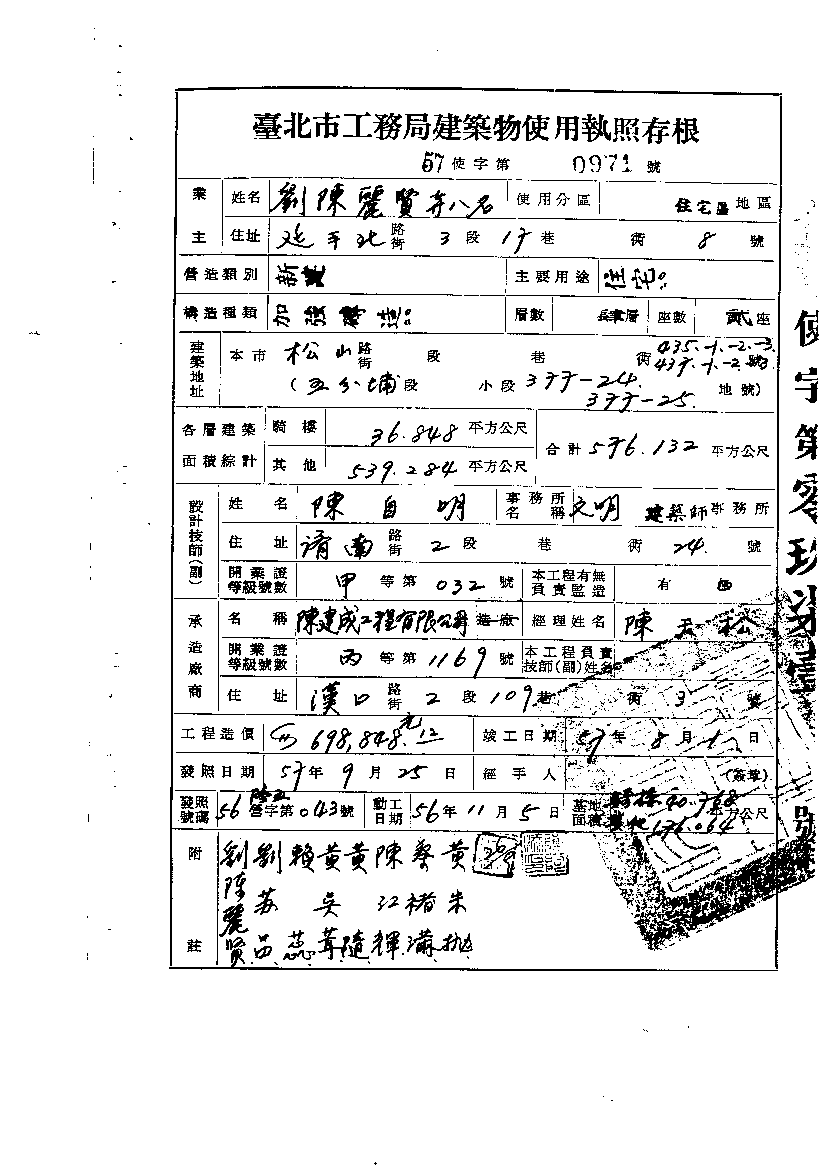 臺北市工務局建築物使用執照存根
57使字第 0971 號
業主 姓名 劉陳麗賢等八名 使用分區 住宅區 地區
住址 延平北 路街 3 段 17 巷 衖 8 號
營造類別 新建 主要用途 住宅
構造種類 加強磚造 層數 層 座數 貳座
建築地址 本市 松山 路街 段 巷 衖 435.-1.-2.-3. 437.-1.-2.-3 號
(五分埔 段 小段 377-24. 377-25. 地號)
各層建築面積綜計 騎樓 36.848 平方公尺 合計 576.132 平方公尺
其他 539.284 平方公尺
設計技師(副) 姓名 陳自明 事務所名稱 文明 建築師事務所
住址 濟南 路街 2 段 巷 衖 24. 號
開業證等級號數 甲 等第 032 號 本工程有無負責監造 有
承造廠商 名稱 陳建成工程有限公司 造廠 經理姓名 陳天松
開業證等級號數 丙 等第 1169 號 本工程負責技師(副)姓名
住址 漢口 路街 2 段 109 巷 衖 3 號
工程造價 698,848.元12 竣工日期 57年 8月 1日
發照日期 57年 9月 25日 經手人 (簽章)
發照號碼 56 營字第043號 動工日期 56年 11月 5日 基地面積 40.768 平方公尺
基地 176.064
附註 劉陳麗賢 劉苏呂 賴蕊 黃吳茸 黃隨 陳江輝 蔡褚滿 黃朱
使字第零玖柒壹號